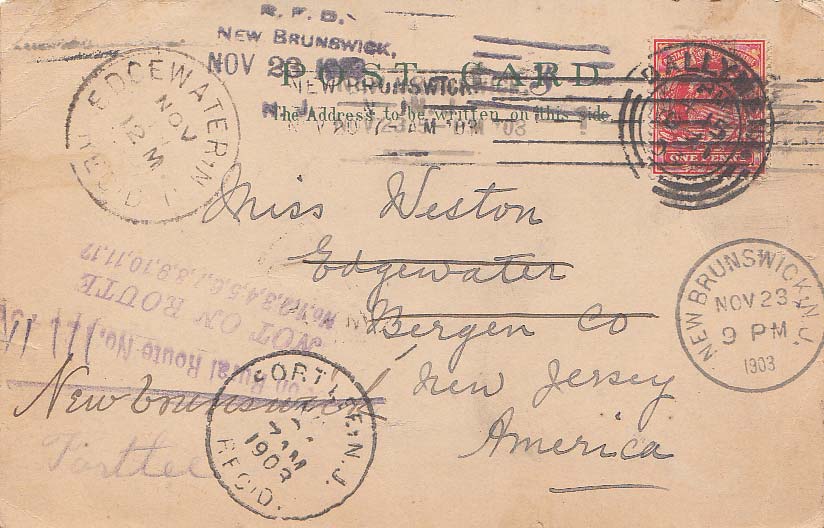 R. F. D.
NEW BRUNSWICK,
NOV 23 1903
POST CARD
NEW BRUNSWICK
N.J.
The Address to be written on this side.
EDGEWATER, N.J.
NOV
12 M
REC'D
BALLYM
ONE PENNY
Miss Weston
Edgewater
Bergen Co
New Jersey
America
NEW BRUNSWICK, N.J.
NOV 23
9 PM
1903
No. 1,2,3,4,5,6,7,8,9,10,11,12
NOT ON ROUTE
on Rural Route No.
New brunswick
Fortlee
FORT LEE, N.J.
7 AM
1903
REC'D.